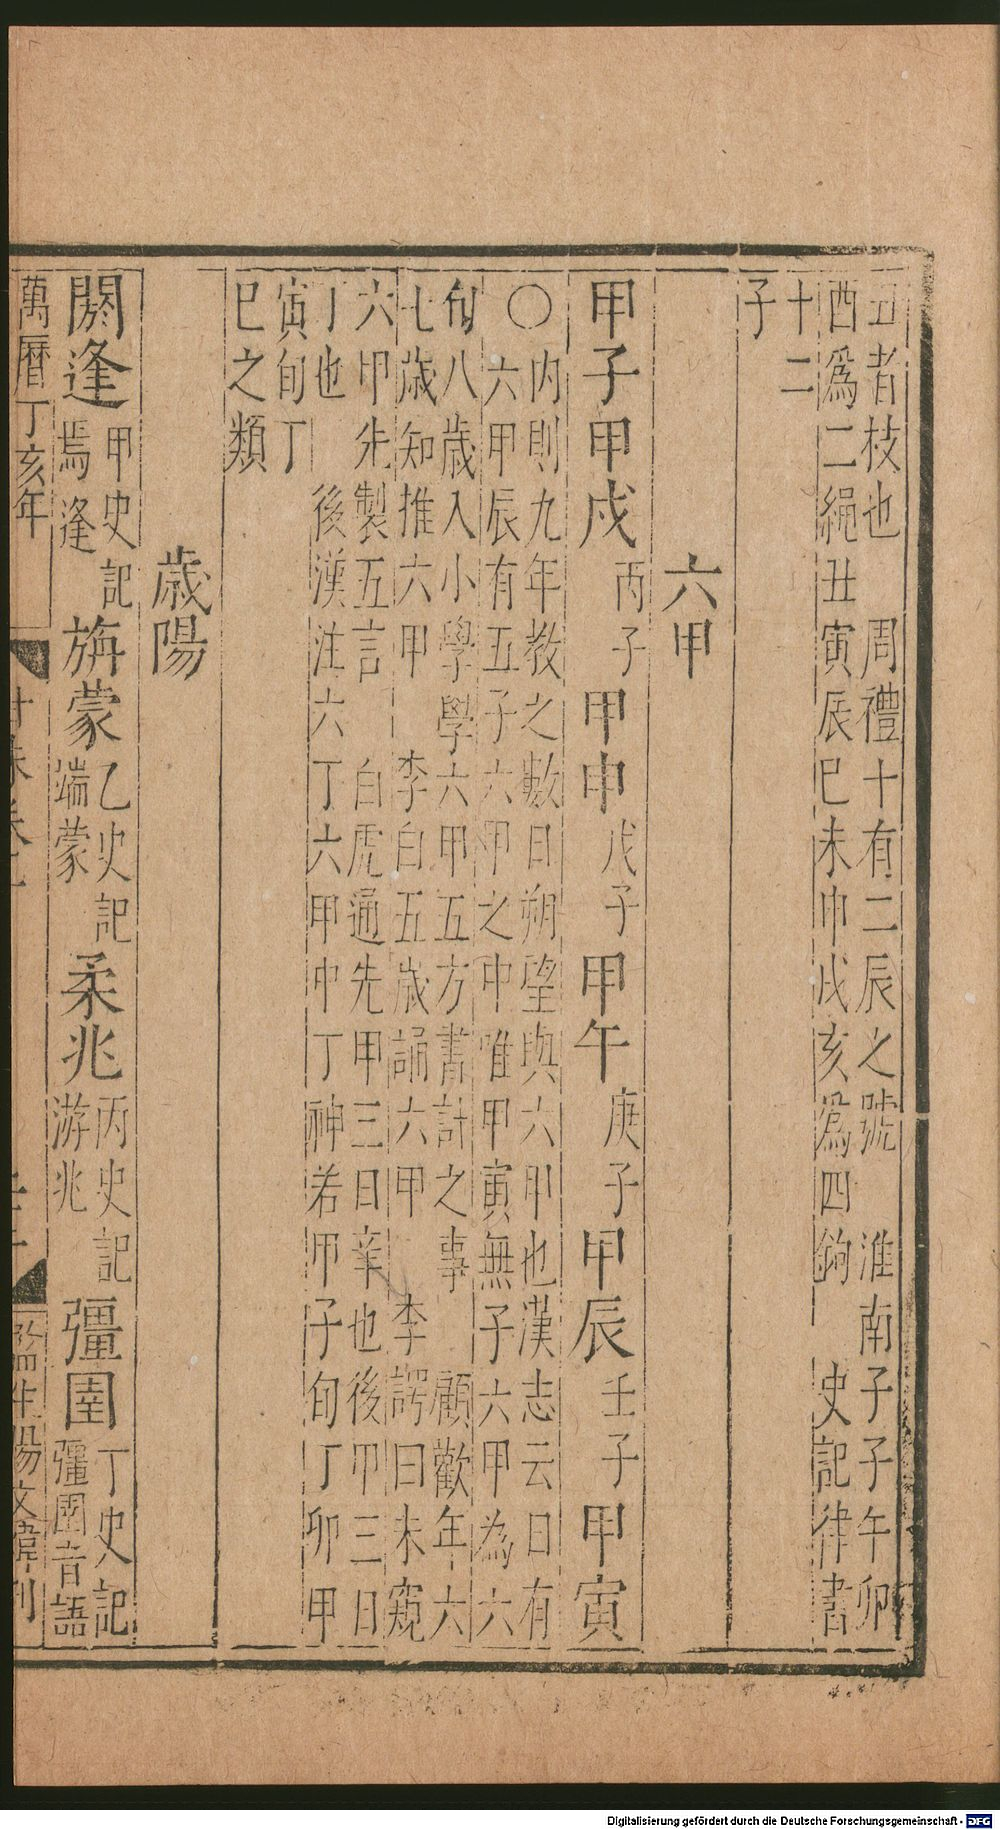 丑者枝也　周禮十有二辰之號　淮南子子午卯
酉爲二繩丑寅辰巳未申戌亥爲四鉤　史記律書
十二
子
六甲
甲子甲戌丙子甲申戊子甲午庚子甲辰壬子甲寅
○内則九年教之數日朔望與六甲也漢志云日有
六甲辰有五子六甲之中唯甲寅無子六甲為六
旬八歲入小學學六甲五方書計之事　顧歡年六
七歲知推六甲　李白五歲誦六甲　李諤曰未窺
六甲先製五言　白虎通先甲三日辛也後甲三日
丁也　後漢注六丁六甲中丁神若甲子旬丁卯甲
寅旬丁
巳之類
歲陽
閼逢甲史記
焉逢
旃蒙乙史記
端蒙
柔兆丙史記
游兆
彊圉丁史記
彊圉音語
萬曆丁亥年
陽文偉刊
Digitalisierung gefördert durch die Deutsche Forschungsgemeinschaft - DFG